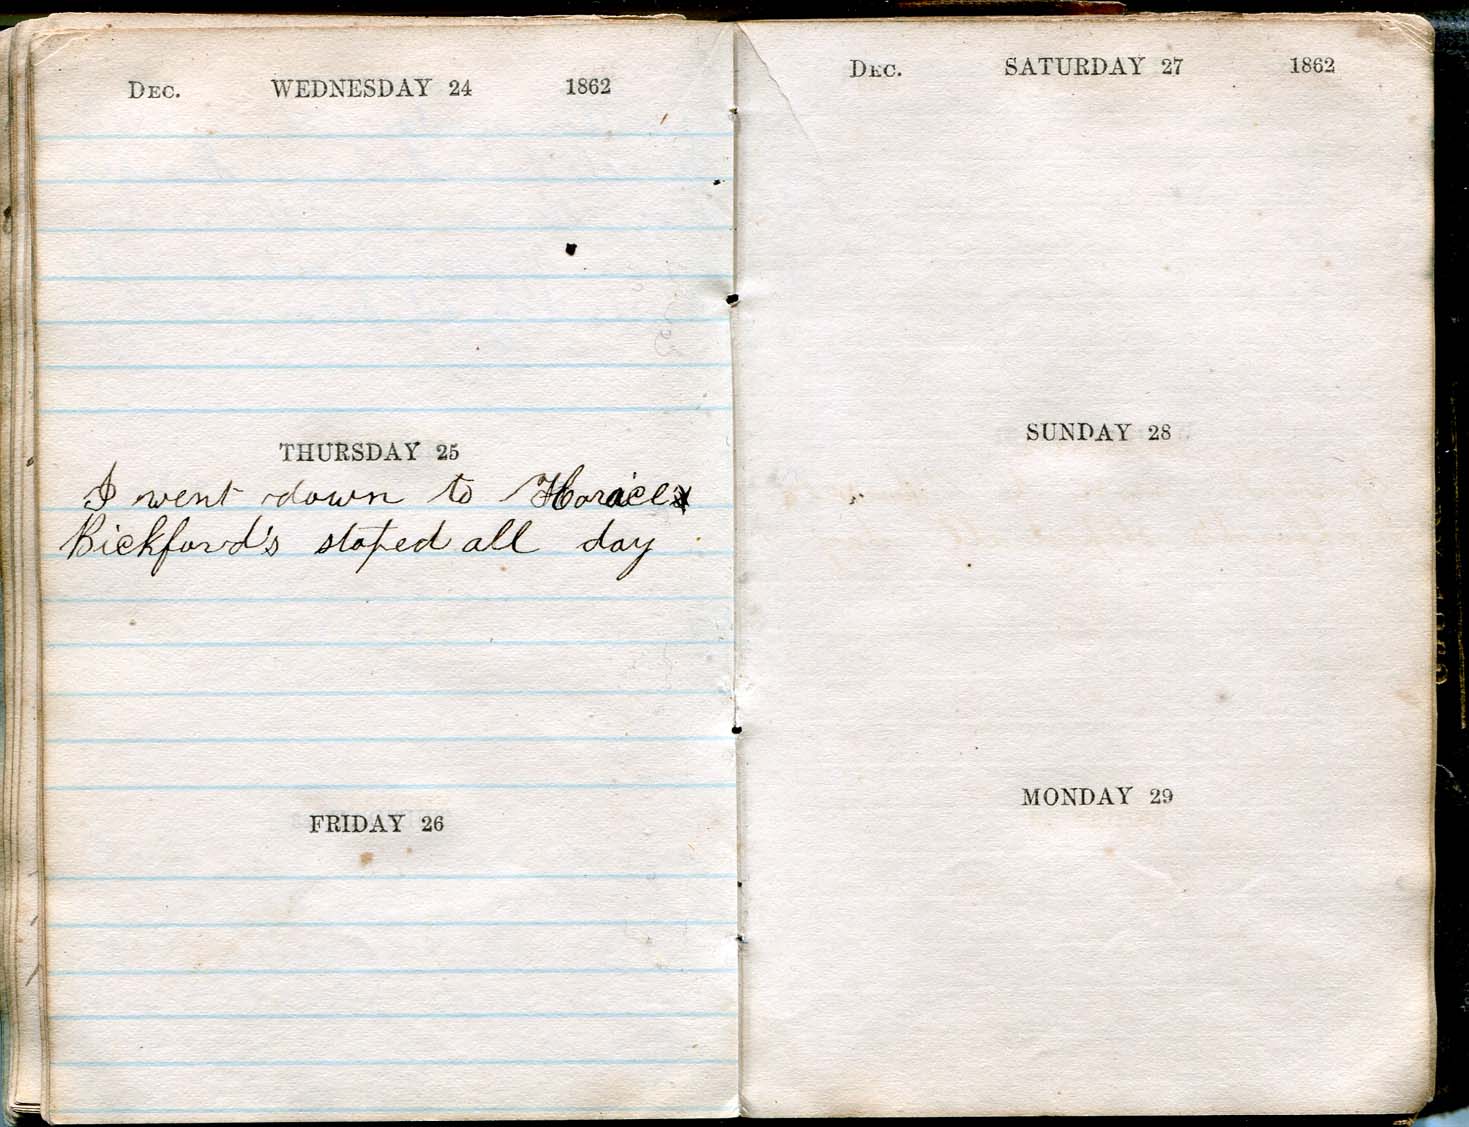 DEC. WEDNESDAY 24 1862
THURSDAY 25
I went down to Horace
Bickford's stoped all day
FRIDAY 26
DEC. SATURDAY 27 1862
SUNDAY 28
MONDAY 29